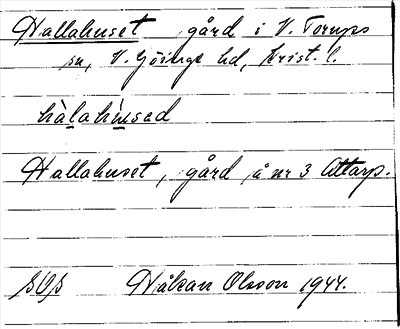 Hallahuset gård i V. Torups
sn, V. Göinge hd, Krist. l.
hàlahúsad
Hallahuset, gård, å nr 3 Attarp.
Håkan Olsson 1944.